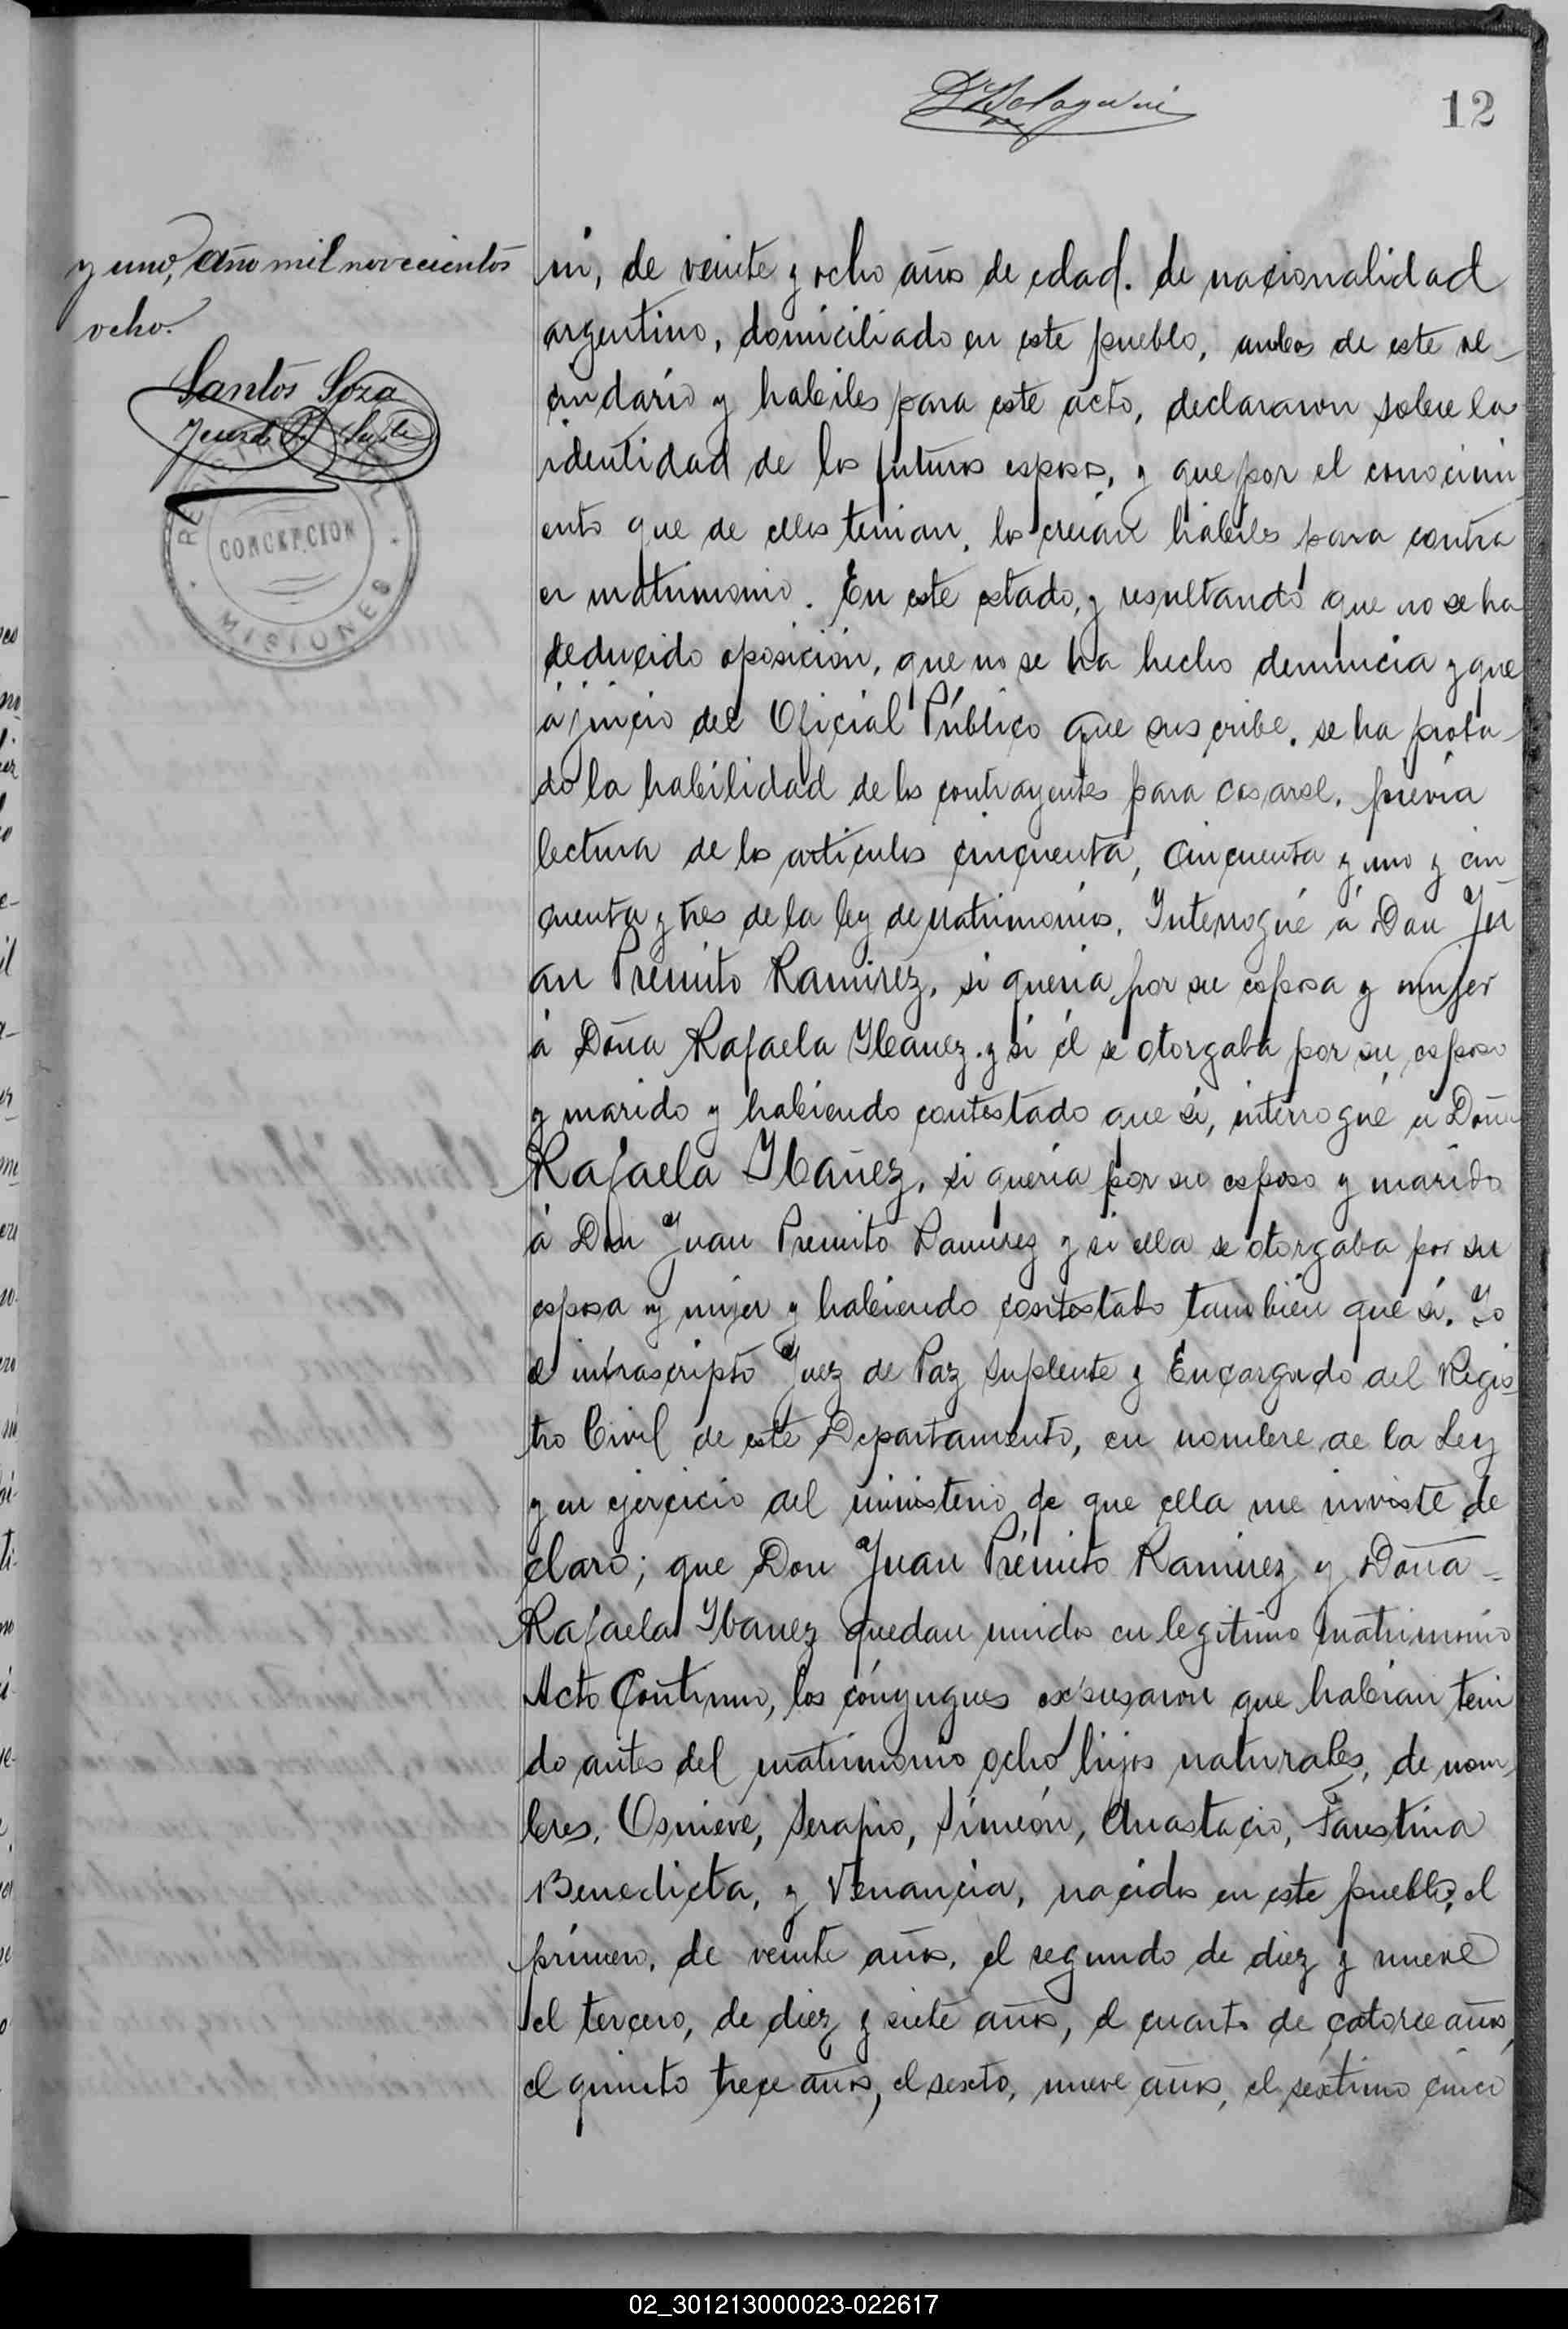 12
y uno, año mil novecientos
ocho.
Santos Soza
Juez de P. Suplte
REGISTRO CIVIL
CONCEPCION
MISIONES
ni, de veinte y ocho años de edad. de nacionalidad
argentino, domiciliado en este pueblo, ambos de este ve-
cindario y habiles para este acto, declararon sobre la
identidad de los futuros esposos, y que por el conocimi
ento que de ellos tenian, los creian hábiles para contra
er matrimonio. En este estado, y resultando que no se ha
deducido oposición, que no se ha hecho denuncia y que
á juicio del Oficial Público que suscribe, se ha proba-
do la habilidad de los contrayentes para casarse, previa
lectura de los artículos cincuenta, cincuenta y uno y cin
cuenta y tres de la ley de matrimonios, Interrogué á Don Ju
an Premito Ramirez, si queria por su esposa y mujer
á Doña Rafaela Ybanez y si él se otorgaba por su esposo
y marido y habiendo contestado que si, interrogué á Doña
Rafaela Ybañez, si queria por su esposo y marido
á Don Juan Premito Ramirez y si ella se otorgaba por su
esposa y mujer y habiendo contestado tambien que si. Yo
el infrascripto Juez de Paz Suplente y Encargado del Regis
tro Civil de este Departamento, en nombre de la Ley
y en ejercicio del ministerio de que ella me inviste de
claro; que Don Juan Prémito Ramirez y Doña -
Rafaela Ybanez quedan unidos en legitimo matrimonio
Acto Continuo, los cónyugues expusaron que habian teni
do antes del matrimonio ocho hijos naturales, de nom
bres, Osnieve, Serapio, Simeón, Anastacio, Faustina
Benedicta, y Venancia, nacidos en este pueblo; el
primero, de veinte años, el segundo de diez y nueve
el tercero, de diez y siete años, el cuarto de catorce años,
el quinto trece años, el sexto, nueve años, el séxtimo cinco
02_301213000023-022617